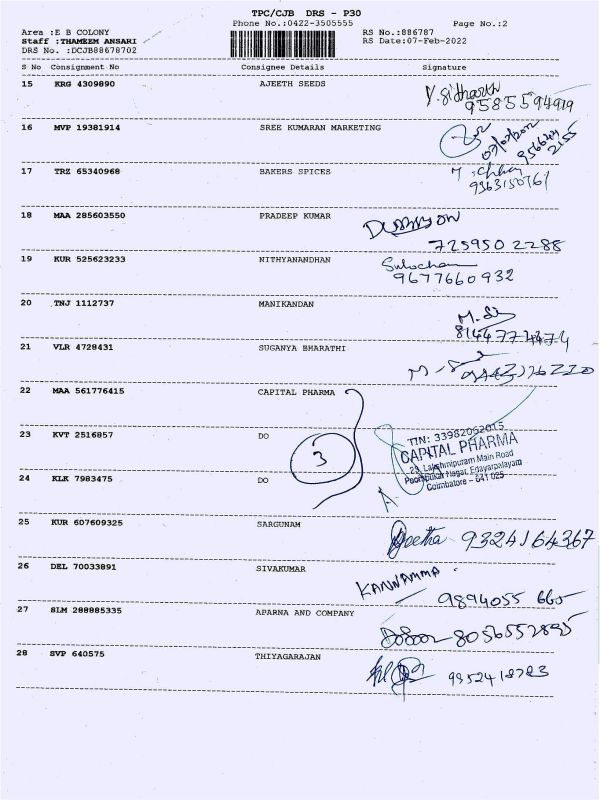 TPC/CJB DRS - P30
Phone No.:0422-3505555
Page No.:2
Area :E B COLONY
Staff :THAMEEM ANSARI
DRS No. :DCJB88678702
RS No.:886787
RS Date:07-Feb-2022
S No Consignment No Consignee Details Signature
15 KRG 4309890 AJEETH SEEDS
Y.Sidharth
9585594919
16 MVP 19381914 SREE KUMARAN MARKETING
17 TRZ 65340968 BAKERS SPICES
9363150761
18 MAA 285603550 PRADEEP KUMAR
725950 2288
19 KUR 525623233 NITHYANANDHAN
Sulochan
9677660932
20 TNJ 1112737 MANIKANDAN
21 VLR 4728431 SUGANYA BHARATHI
22 MAA 561776415 CAPITAL PHARMA
23 KVT 2516857 DO
3
TIN: 33982062015
CAPITAL PHARMA
23, Lakshmipuram Main Road
Poompukar Nagar, Edayarpalayam
Coimbatore - 641 025
24 KLK 7983475 DO
25 KUR 607609325 SARGUNAM
Geetha 9324164367
26 DEL 70033891 SIVAKUMAR
KANNAMMA
9894055 660
27 SLM 288885335 APARNA AND COMPANY
8056552895
28 SVP 640575 THIYAGARAJAN
9952418783